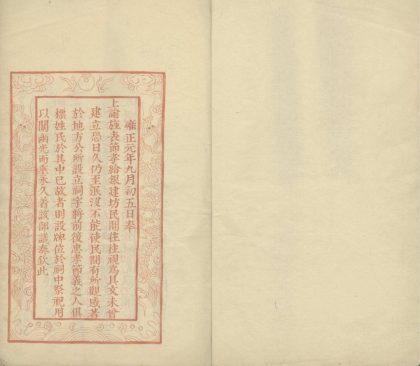 雍正元年九月初五日奉
上諭旌表節孝給銀建坊民間往往視為具文未曾
建立恐日久仍至泯沒不能使民間有所觀感著
於地方公所設立祠宇將前後忠孝節義之人俱
標姓氏於其中已故者則設牌位於祠中祭祀用
以闡幽光而垂永久着該部議奏欽此